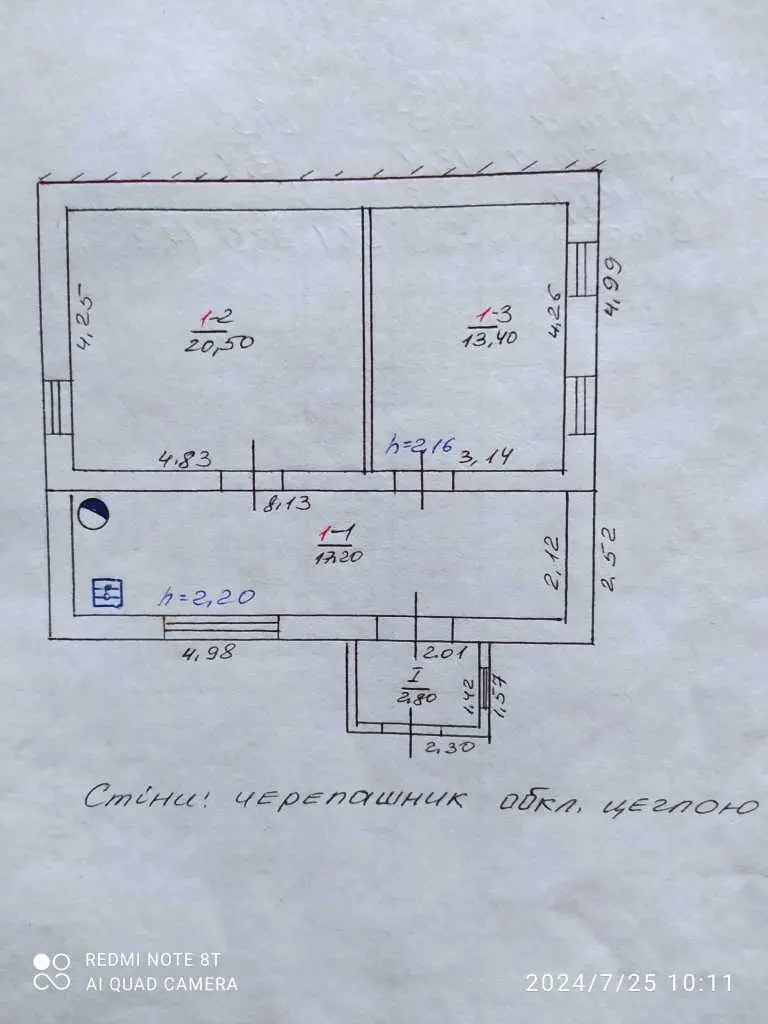 4,25
1-2
20,50
4,83
1-3
13,40
4,26
4,99
h=2,16
3,14
8,13
1-1
17,20
2,12
2,52
h=2,20
4,98
2.01
I
2,80
1,42
1,57
2,30
Стіни: черепашник обкл. цеглою
REDMI NOTE 8T
AI QUAD CAMERA
2024/7/25 10:11